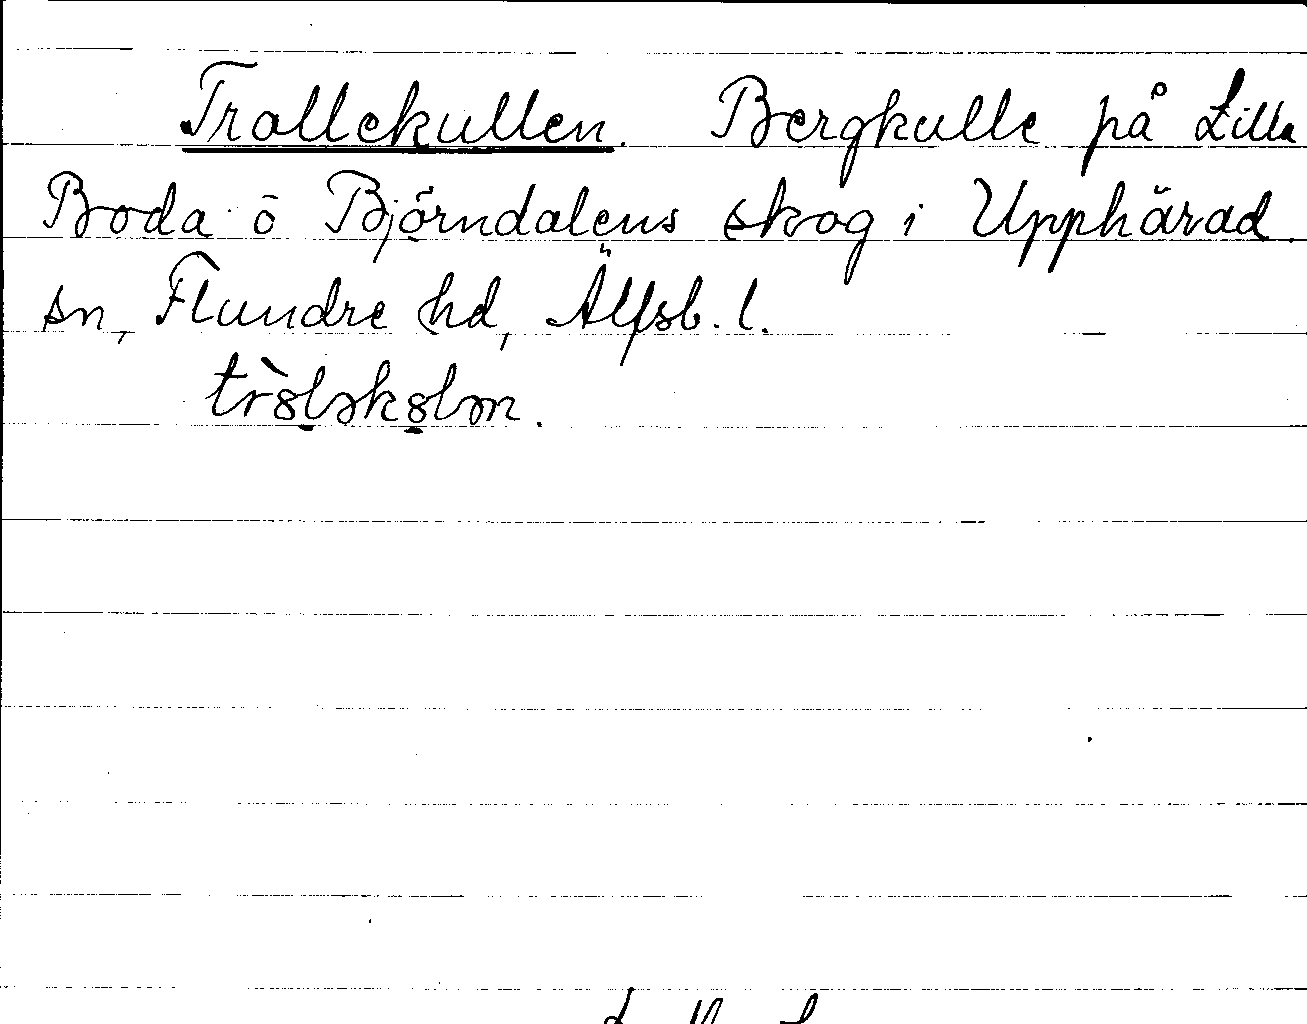 Trollekullen. Bergkulle på Lilla
Boda o Björndalens skog i Upphärad
sn, Flundre hd, Älfsb. l.